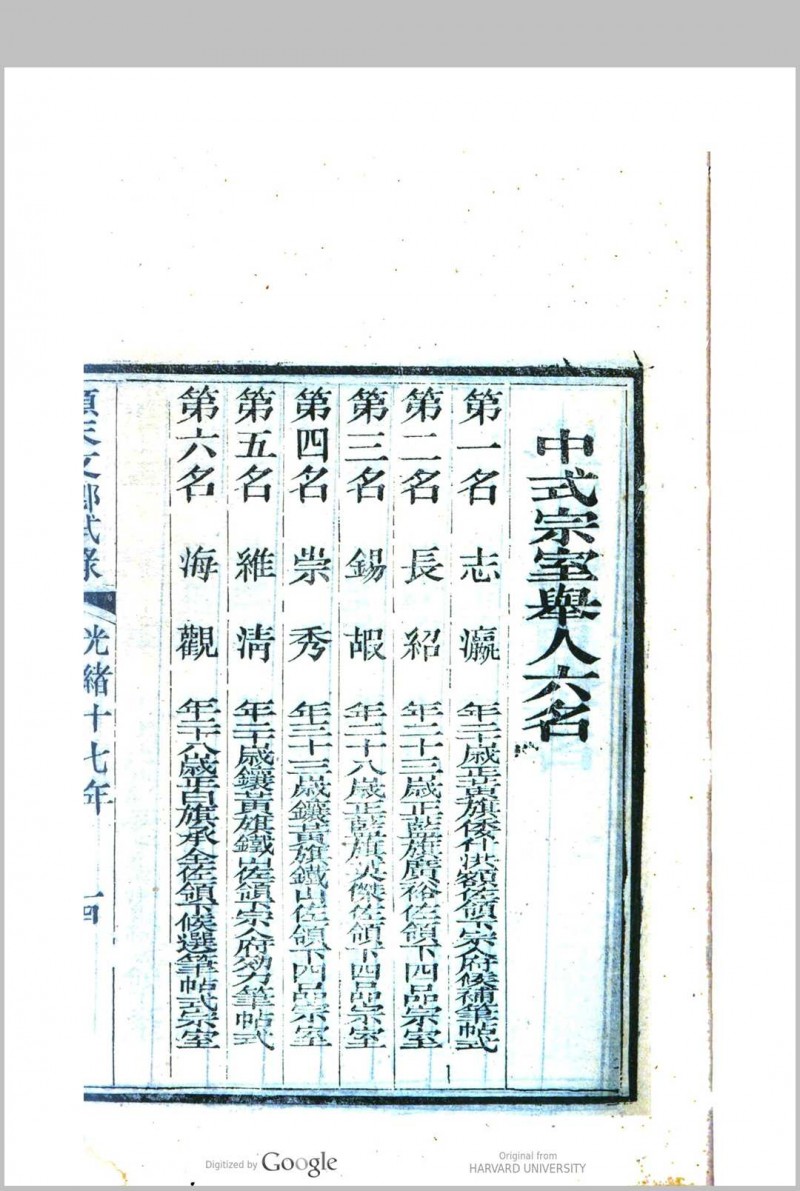 中式宗室舉人六名
第一名 志 瀛 年二十歲正黃旗倭什洪額佐領下宗人府候補筆帖式
第二名 長 紹 年二十三歲正藍旗廣裕佐領下四品宗室
第三名 錫 嘏 年二十八歲正藍旗英傑佐領下四品宗室
第四名 崇 秀 年三十三歲鑲黃旗鐵山佐領下四品宗室
第五名 維 清 年二十歲鑲黃旗鐵山佐領下宗人府効力筆帖式
第六名 海 觀 年二十八歲正白旗承全佐領下候選筆帖式宗室
順天文鄉試錄 光緒十七年 十四
Digitized by Google
Original from
HARVARD UNIVERSITY